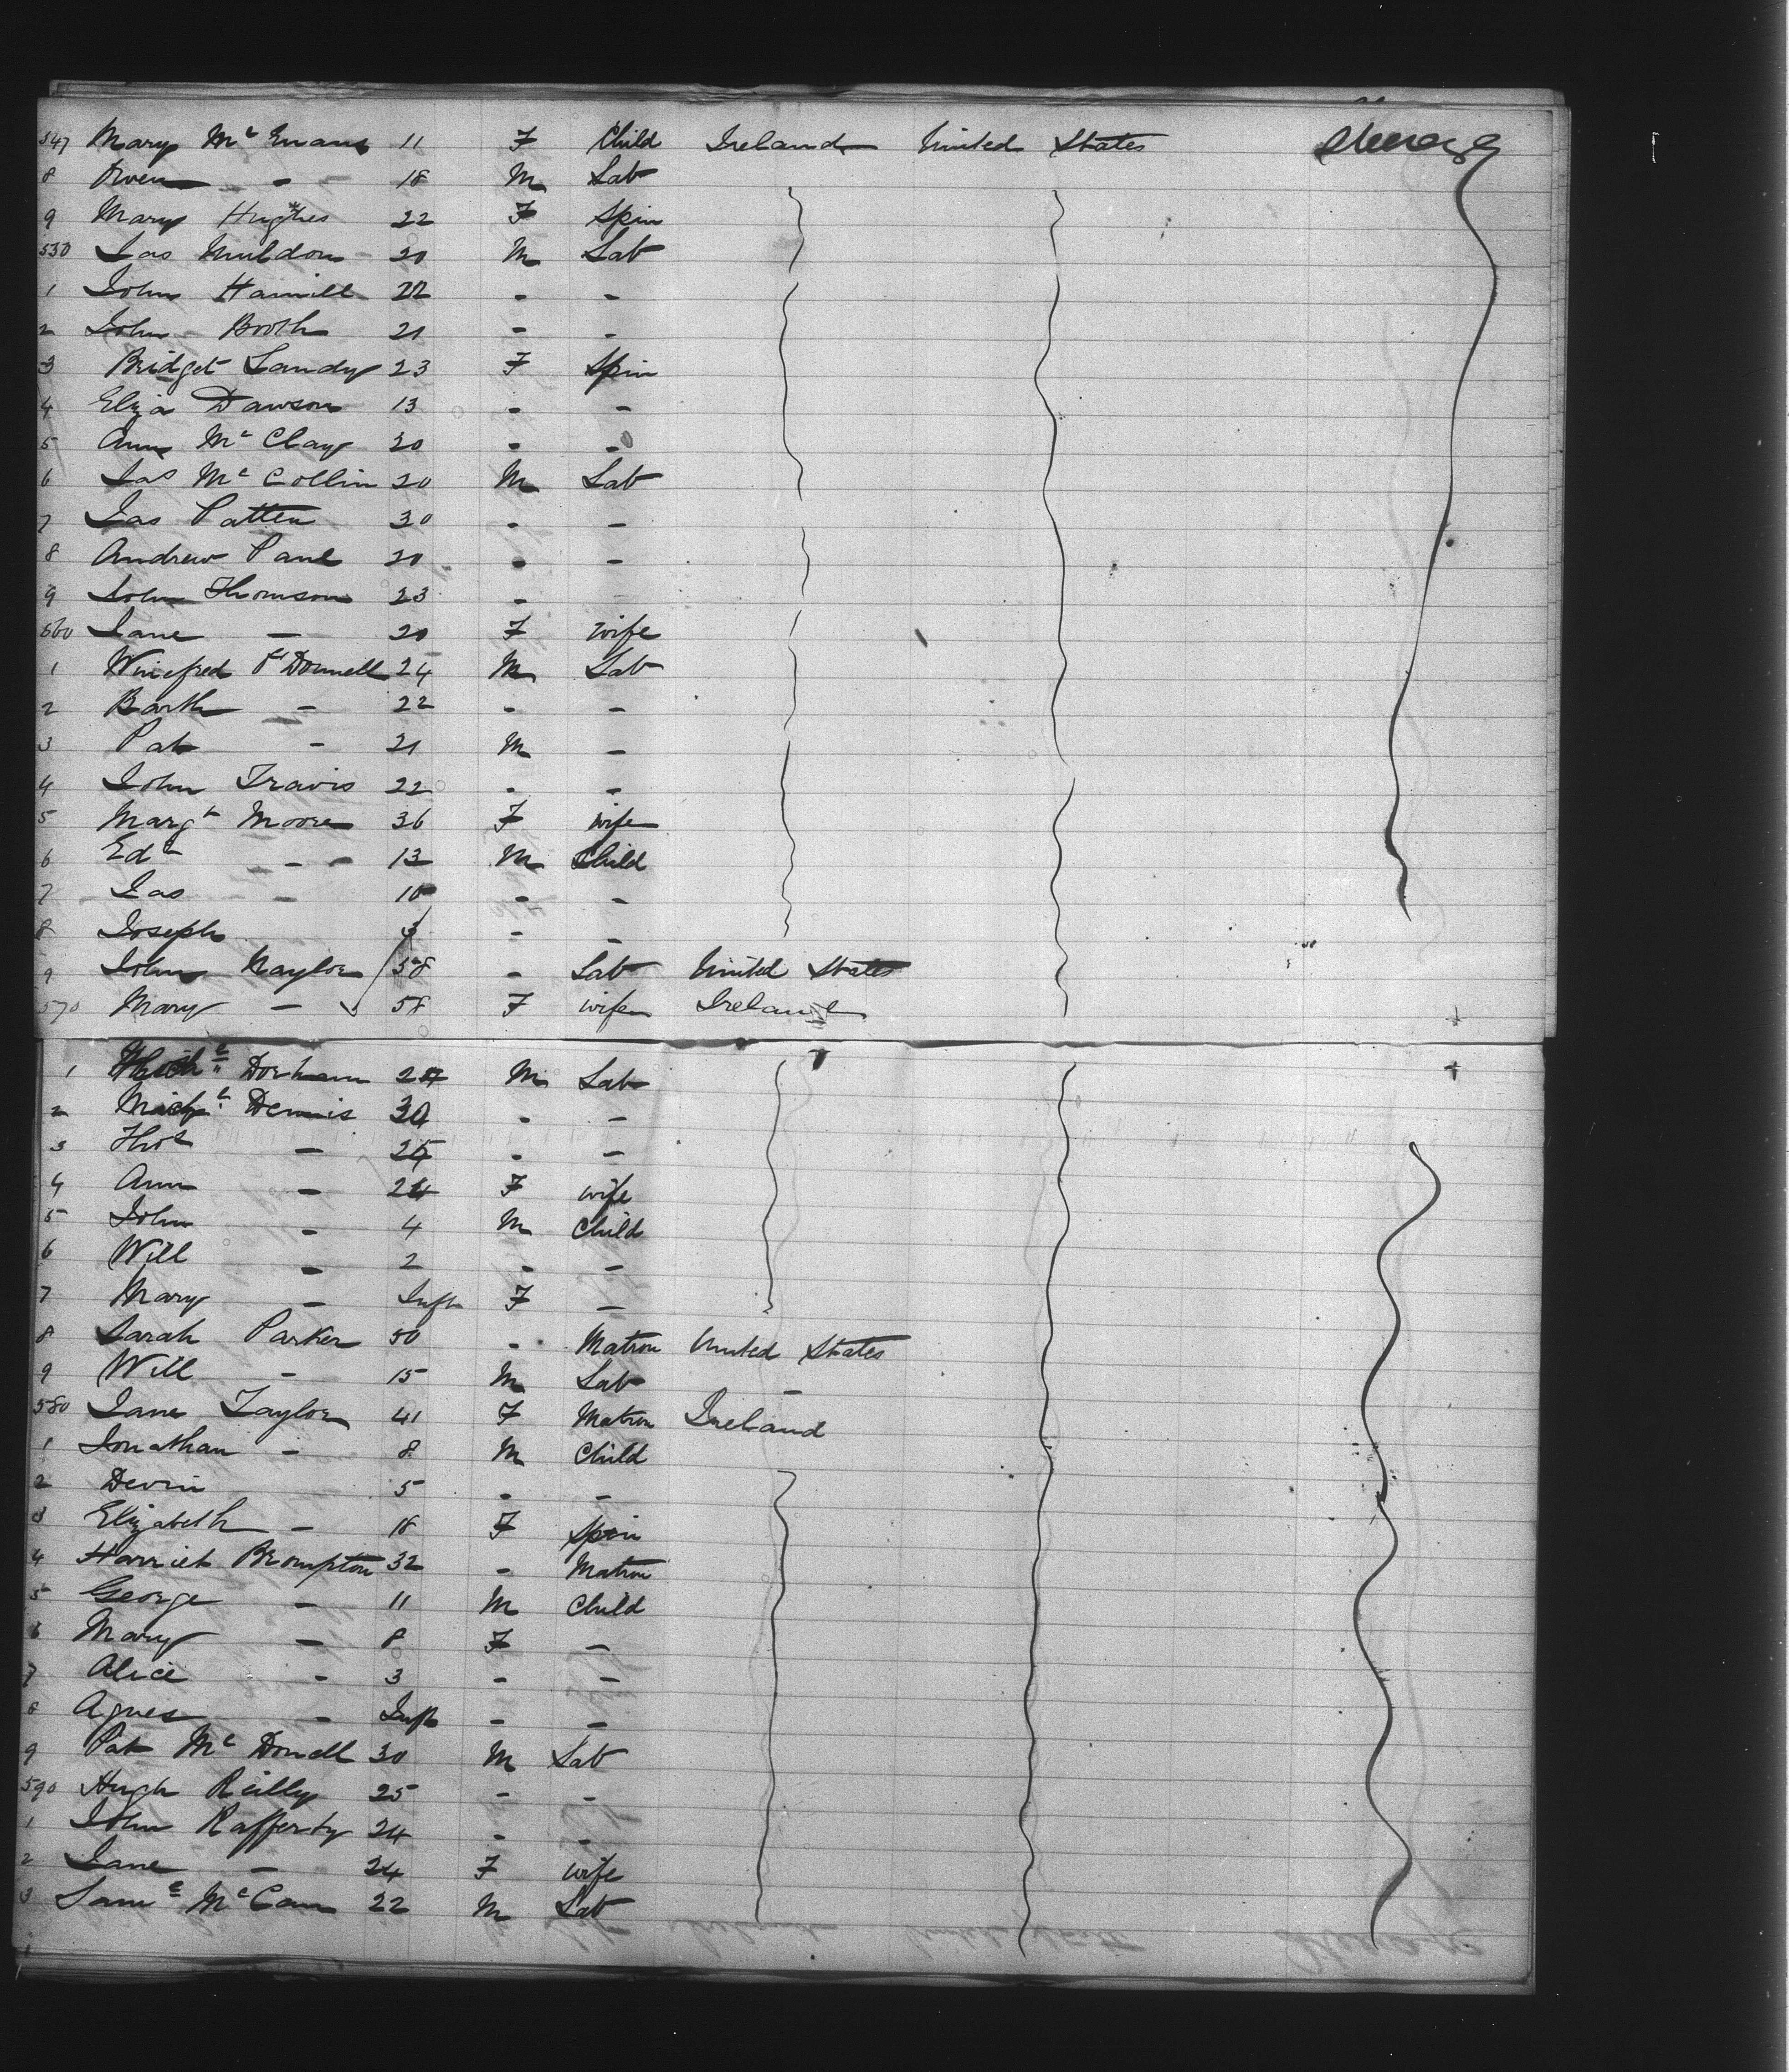 547 Mary Mc Emans 11 F Child Ireland United States Steerage
8 Owen - - 18 M Lab
9 Mary Hughes 22 F Spin
550 Jas Muldon 20 M Lab
1 John Hamill 22 - -
2 John Booth 21 - -
3 Bridget Landy 23 F Spin
4 Eliza Dawson 13 - -
5 Ann Mc Clay 20 - -
6 Jas Mc Collin 20 M Lab
7 Jas Patten 30 - -
8 Andrew Paul 20 - -
9 John Thomson 23 -
560 Jane - 20 F wife
1 Winefred O'Donnell 24 M Lab
2 Barth - 22 - -
3 Pat - 21 M -
4 John Travis 22 - -
5 Margt Moore 36 F wife
6 Ed - - 13 M Child
7 Jas - 10 - -
8 Joseph - -
9 John Naylor 58 - Lab United States
570 Mary - 58 F wife Ireland
1 Dorham M Lab
2 Michl Dennis 30 - -
3 Thos - 25 - -
4 Ann - 24 F wife
5 John - 4 M Child
6 Will - 2 - -
7 Mary - Inft F -
8 Sarah Parker 50 - Matron United States
9 Will - 15 M Lab -
580 Jane Taylor 41 F Matron Ireland
1 Jonathan - 8 M Child
2 5 - -
3 Elizabeth - 18 F Spin
4 Harriet Brompton 32 - Matron
5 George - 11 M Child
6 Mary - 8 F -
7 Alice - 3 - -
8 Agnes - Inft - -
9 Pat Mc Donell 30 M Lab
590 Hugh Reilly 25 - -
1 John Rafferty 24 - -
2 Jane - 24 F wife
3 Saml McCann 22 M Lab